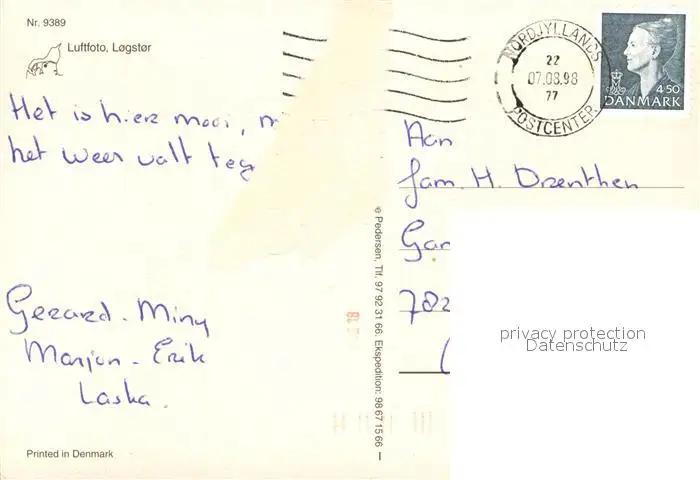 Nr. 9389
Luftfoto, Løgstør
Het is hier mooi, m
het weer valt teg
Gerard - Miny
Marjon - Erik
Laska.
Printed in Denmark
© Pedersen, Tlf. 97 92 31 66. Ekspedition: 98 67 15 66
NORDJYLLANDS
22
07.08.98
77
POSTCENTER
4.50
DANMARK
Aan
fam. H. Drenthen
Gar
782
privacy protection
Datenschutz